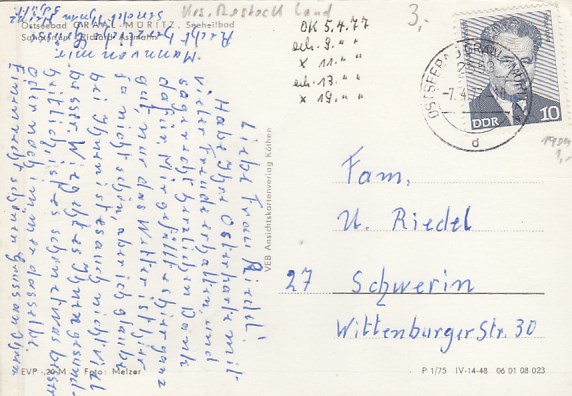 Krs. Rostock Land
3,-
Ostseebad GRAAL-MÜRITZ, Seeheilbad
Sanatorium „Richard Assmann“
OK 5.4.77
erh. 9. " "
x 11. " "
erh. 13. " "
x 19. " "
OSTSEEBAD GRAAL-MÜRITZ
-7.4.
d
DDR
10
1,-
Liebe Frau Riedel!
Habe Ihre Osterkarte mit
vieler Freude erhalten, und
sage recht herzlichen Dank
dafür. Mir gefällt es hier ganz
gut, nur das Wetter ist hier
so nicht schön, aber ich glaube
bei Ihnen ist es auch nicht viel
besser. Wie geht es Ihnen gesund-
heitlich, ist es schon etwas besser
oder noch immer dasselbe.
Einen recht schönen Gruss an Ihren
Mann von mir.
Recht herzliche Grüsse
sendet Ihnen
VEB Ansichtskartenverlag Köthen
Fam.
U. Riedel
27 Schwerin
Wittenburger Str. 30
EVP -,20 M Foto: Melzer
P 1/75 IV-14-48 06 01 08 023